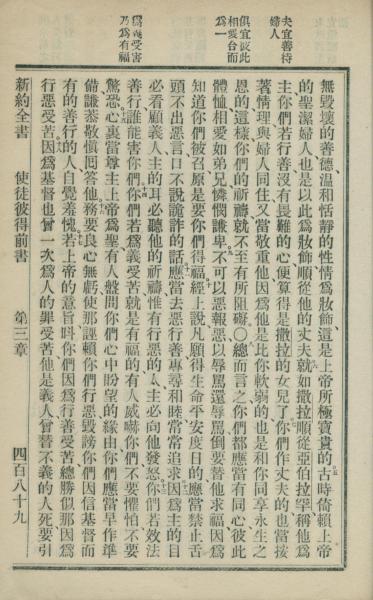 夫宜善待
婦人
俱宜彼此
相愛合而
爲一
爲義受害
乃爲有福
無毀壞的善德、溫和恬靜的性情爲妝飾、這是上帝所極寶貴的古時倚賴上帝
的聖潔婦人、也是以此爲妝飾順從他的丈夫就如撒拉順從亞伯拉罕稱他爲
主、你們若行善沒有畏難的心、便算得是撒拉的女兒了你們作丈夫的也當按
著情理與婦人同住又當敬重他因爲他是比你軟弱的也是和你同享永生之
恩的這樣你們的祈禱就不至有所阻礙○總而言之你們都應當有同心彼此
體恤相愛如弟兄憐憫謙卑不可以惡報惡以辱罵還辱罵倒要替他求福因爲
知道你們被召原是要你們得福經上說凡願得生命平安度日的應當禁止舌
頭不出惡言口不說詭詐的話應當去惡行善專尋和睦常常追求因爲主的目
必看顧義人主的耳必聽他的祈禱惟有行惡的人主必向他發怒你們若效法
善行誰能害你們你們若爲義受苦就是有福的有人威嚇你們不要懼怕不要
驚恐心裏當尊主上帝爲聖有人盤問你們心中盼望的緣由你們應當早作準
備謙恭敬愼回答他務要良心無虧使那誣賴你們行惡毀謗你們因信基督而
有的善行的人自覺羞愧若上帝的意旨呌你們因爲行善受苦總勝似那因爲
行惡受苦因爲基督也曾一次爲人的罪受苦他是義人曾替不義的人死要引
新約全書　使徒彼得前書　第三章　四百八十九